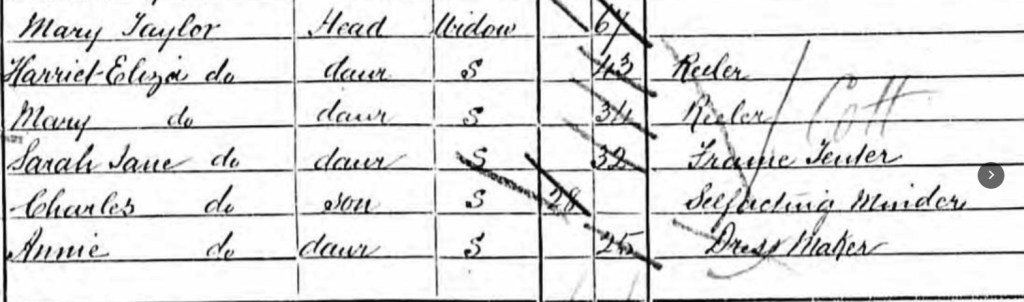 Mary Taylor Head Widow 67
Harriet Eliza do daur S 43 Reeler
Mary do daur S 34 Reeler Cott
Sarah Jane do daur S 32 Frame Tenter
Charles do son S 28 Selfacting Minder
Annie do daur S 25 Dress Maker